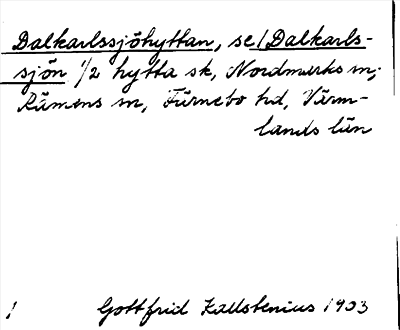 Dalkarlssjöhyttan, se/Dalkarls-
sjön 1/2 hytta sk, Nordmarks m;
Rämens m, Färnebo hd, Värm-
lands län
Gottfrid Kallstenius 1903